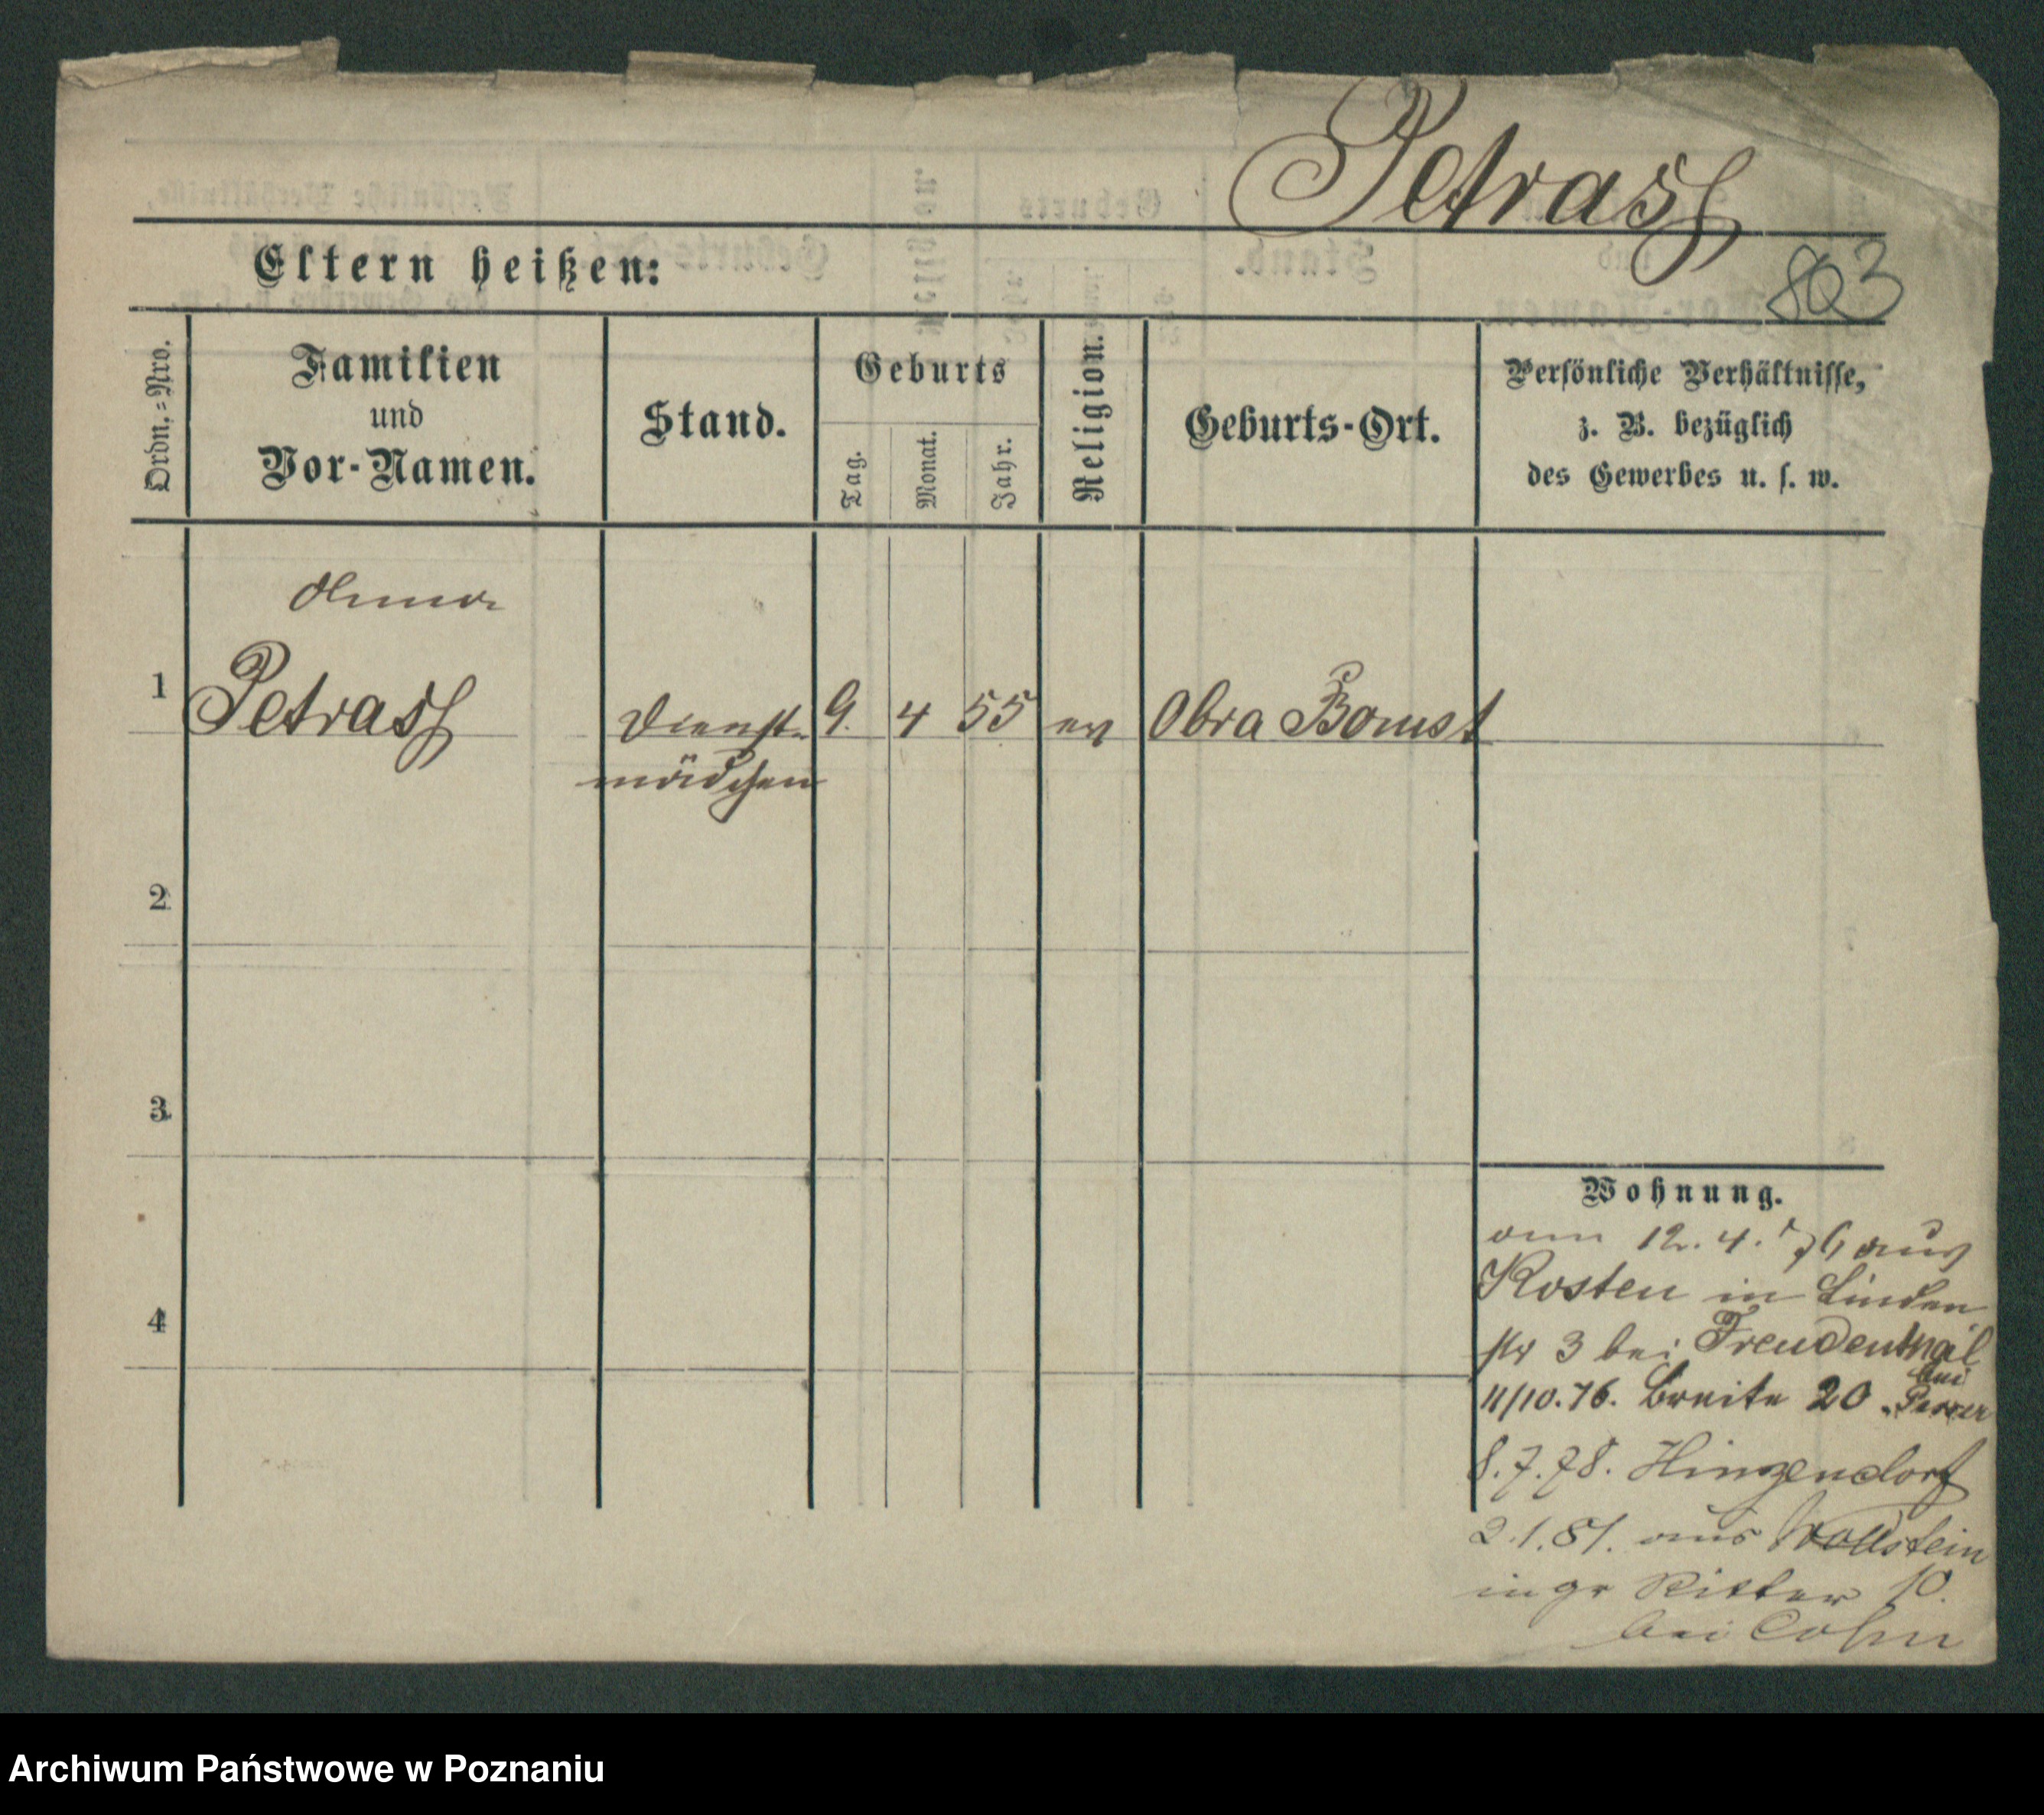 Petrass
803
Eltern heißen:
Ordn.=Nro.
Familien
und
Vor-Namen.
Stand.
Geburts
Tag.
Monat.
Jahr.
Religion.
Geburts-Ort.
Persönliche Verhältnisse,
z. B. bezüglich
des Gewerbes u. s. w.
Anna
1
Petrass
Dienst-
mädchen
9.
4
55
ev
Obra Bomst
2
3
4
Wohnung.
am 12. 4. 76 aus
Kosten in Linden
str 3 bei Freudenthal
11/10.76. Breite 20. bei
8.7.78. Hinzendorf
2.1.81. aus Wollstein
in gr Ritter 10.
bei Cohn
Archiwum Państwowe w Poznaniu